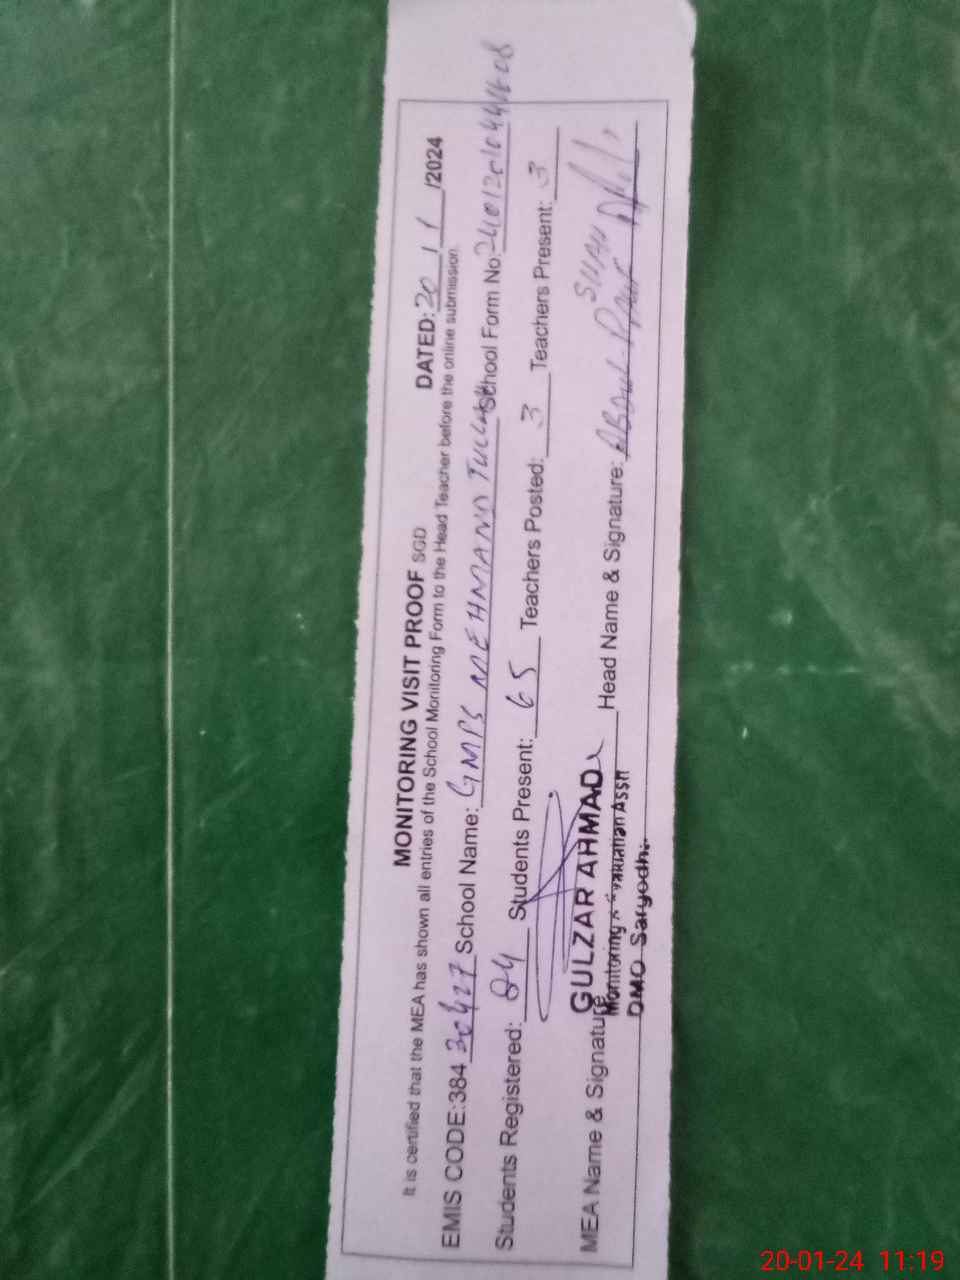 MONITORING VISIT PROOF SGD DATED: 20 / 1 /2024
It is certified that the MEA has shown all entries of the School Monitoring Form to the Head Teacher before the online submission.
EMIS CODE:384 30427 School Name: GMPS MEHMAND School Form No:
Students Registered: 84 Students Present: 65 Teachers Posted: 3 Teachers Present: 3
MEA Name & Signature GULZAR AHMAD Head Name & Signature: ABDUL SHAH
Monitoring
DMO Sargodha
20-01-24 11:19